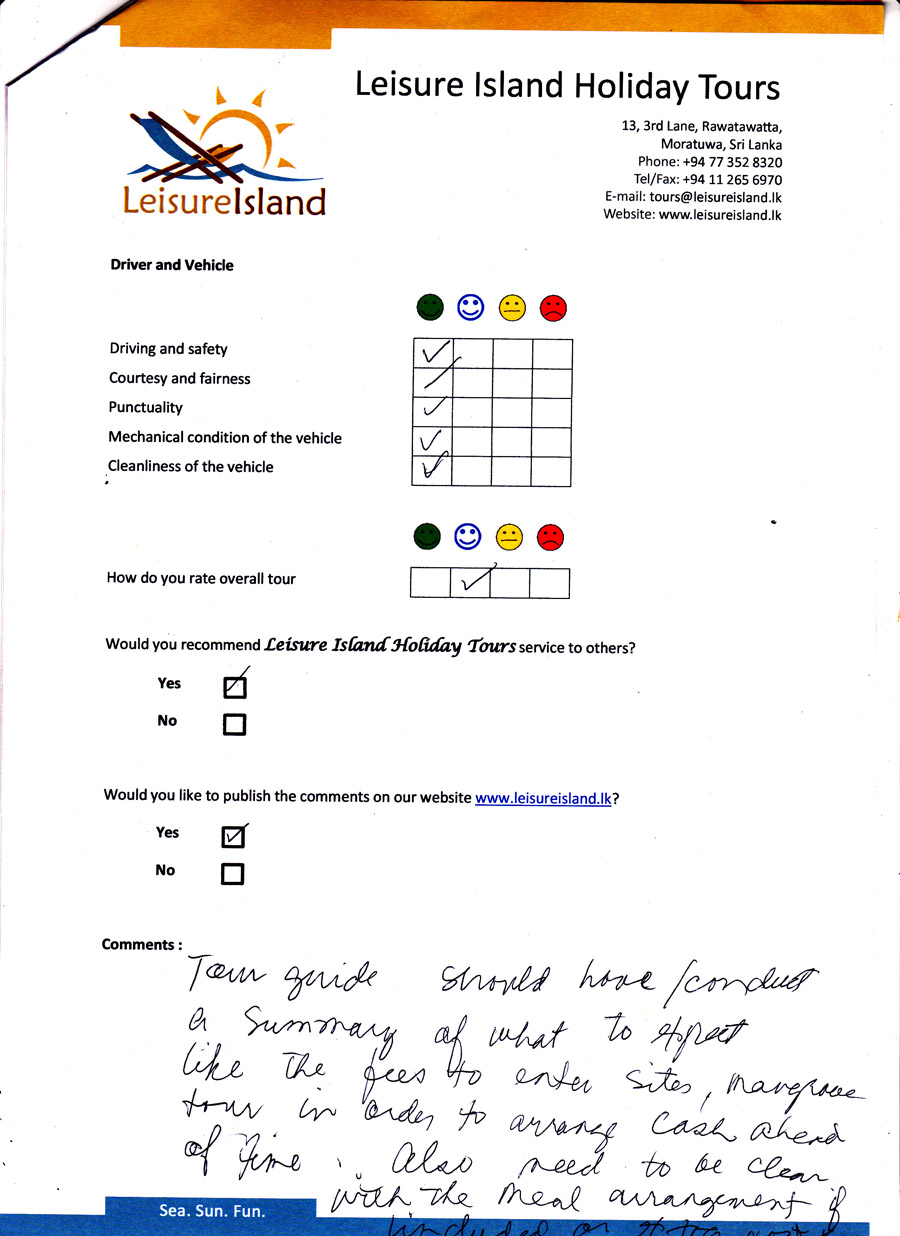 Leisure Island Holiday Tours
13, 3rd Lane, Rawatawatta,
Moratuwa, Sri Lanka
Phone: +94 77 352 8320
Tel/Fax: +94 11 265 6970
E-mail: tours@leisureisland.lk
Website: www.leisureisland.lk
LeisureIsland
Driver and Vehicle
Driving and safety
Courtesy and fairness
Punctuality
Mechanical condition of the vehicle
Cleanliness of the vehicle
How do you rate overall tour
Would you recommend Leisure Island Holiday Tours service to others?
Yes
No
Would you like to publish the comments on our website www.leisureisland.lk?
Yes
No
Comments :
Tour guide should have/conduct
a summary of what to expect
like the fees to enter sites, mangrove
tour in order to arrange cash ahead
of time. Also need to be clear
with the meal arrangement if
included or
Sea. Sun. Fun.